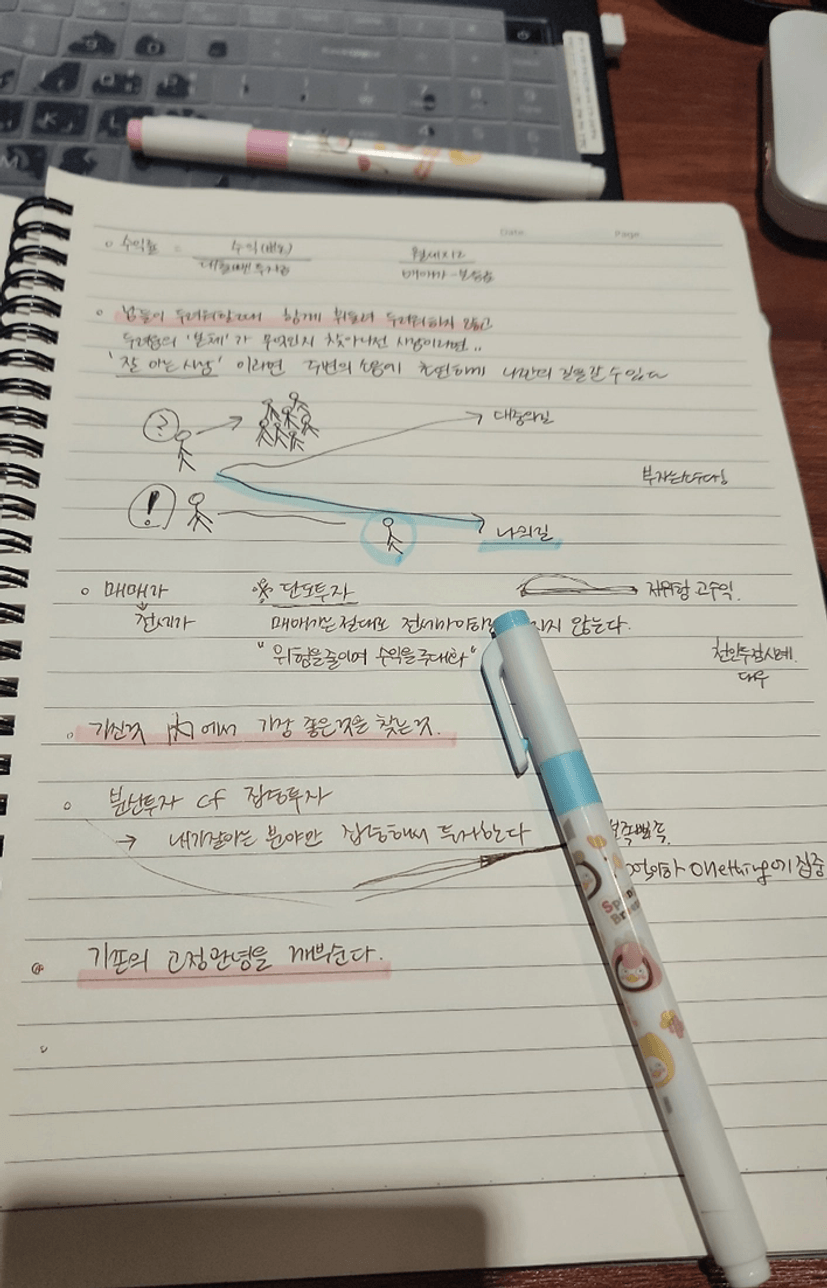 Date. Page.
수익률 = 수익(매도) / 월세x12 / 매매가-보증금
남들이 두려워할때 함께 휘둘려 두려워하지 않고
두려움의 '본체'가 무엇인지 찾아나선 사람이라면..
'잘 아는 사람' 이라면 주변의 소음에 초연하게 나만의 길을 갈 수 있다
?
대중의길
부자는 소수다!
!
나의길
매매가 단도투자 저위험 고수익.
전세가 매매가는 절대로 전세가이하로 지지 않는다.
"위험을 줄이며 수익을 극대화"
대우
가진것 內에서 가장 좋은것을 찾는것.
분산투자 cf 집중투자
→ 내가잘아는 분야만 집중해서 투자한다
onething에 집중
기존의 고정관념을 깨부순다.